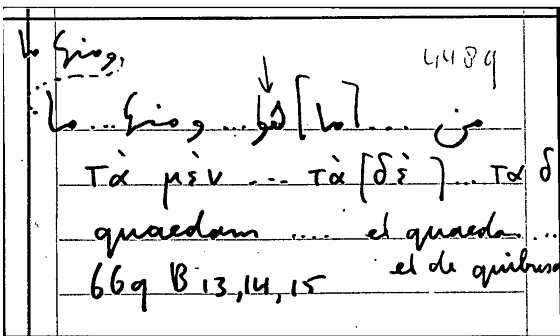 ومنها ما
4489
من ... [ما] ... ومنها ... ما
τὰ μὲν ... τὰ [δὲ] ... τα δ
quaedam .... et quaeda ...
et de quibusd
669 B 13, 14, 15